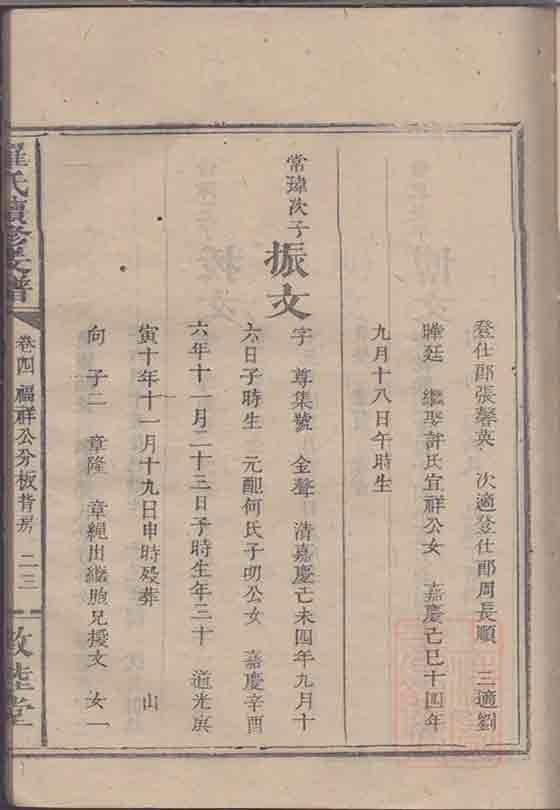 登仕郎張馨英 次適登仕郎周長順 三適劉
曄廷 繼娶許氏宜祥公女 嘉慶己巳十四年
九月十八日午時生
常瑋次子 振文
字 尊集號 金聲 清嘉慶己未四年九月十
六日子時生 元配何氏子明公女 嘉慶辛酉
六年十一月二十三日子時生年三十 道光庚
寅十年十一月十九日申時歿葬 山
向 子二 章隆 章繩出繼胞兄授文 女一
羅氏續修支譜
卷四 福祥公分板背房 二三
敦睦堂